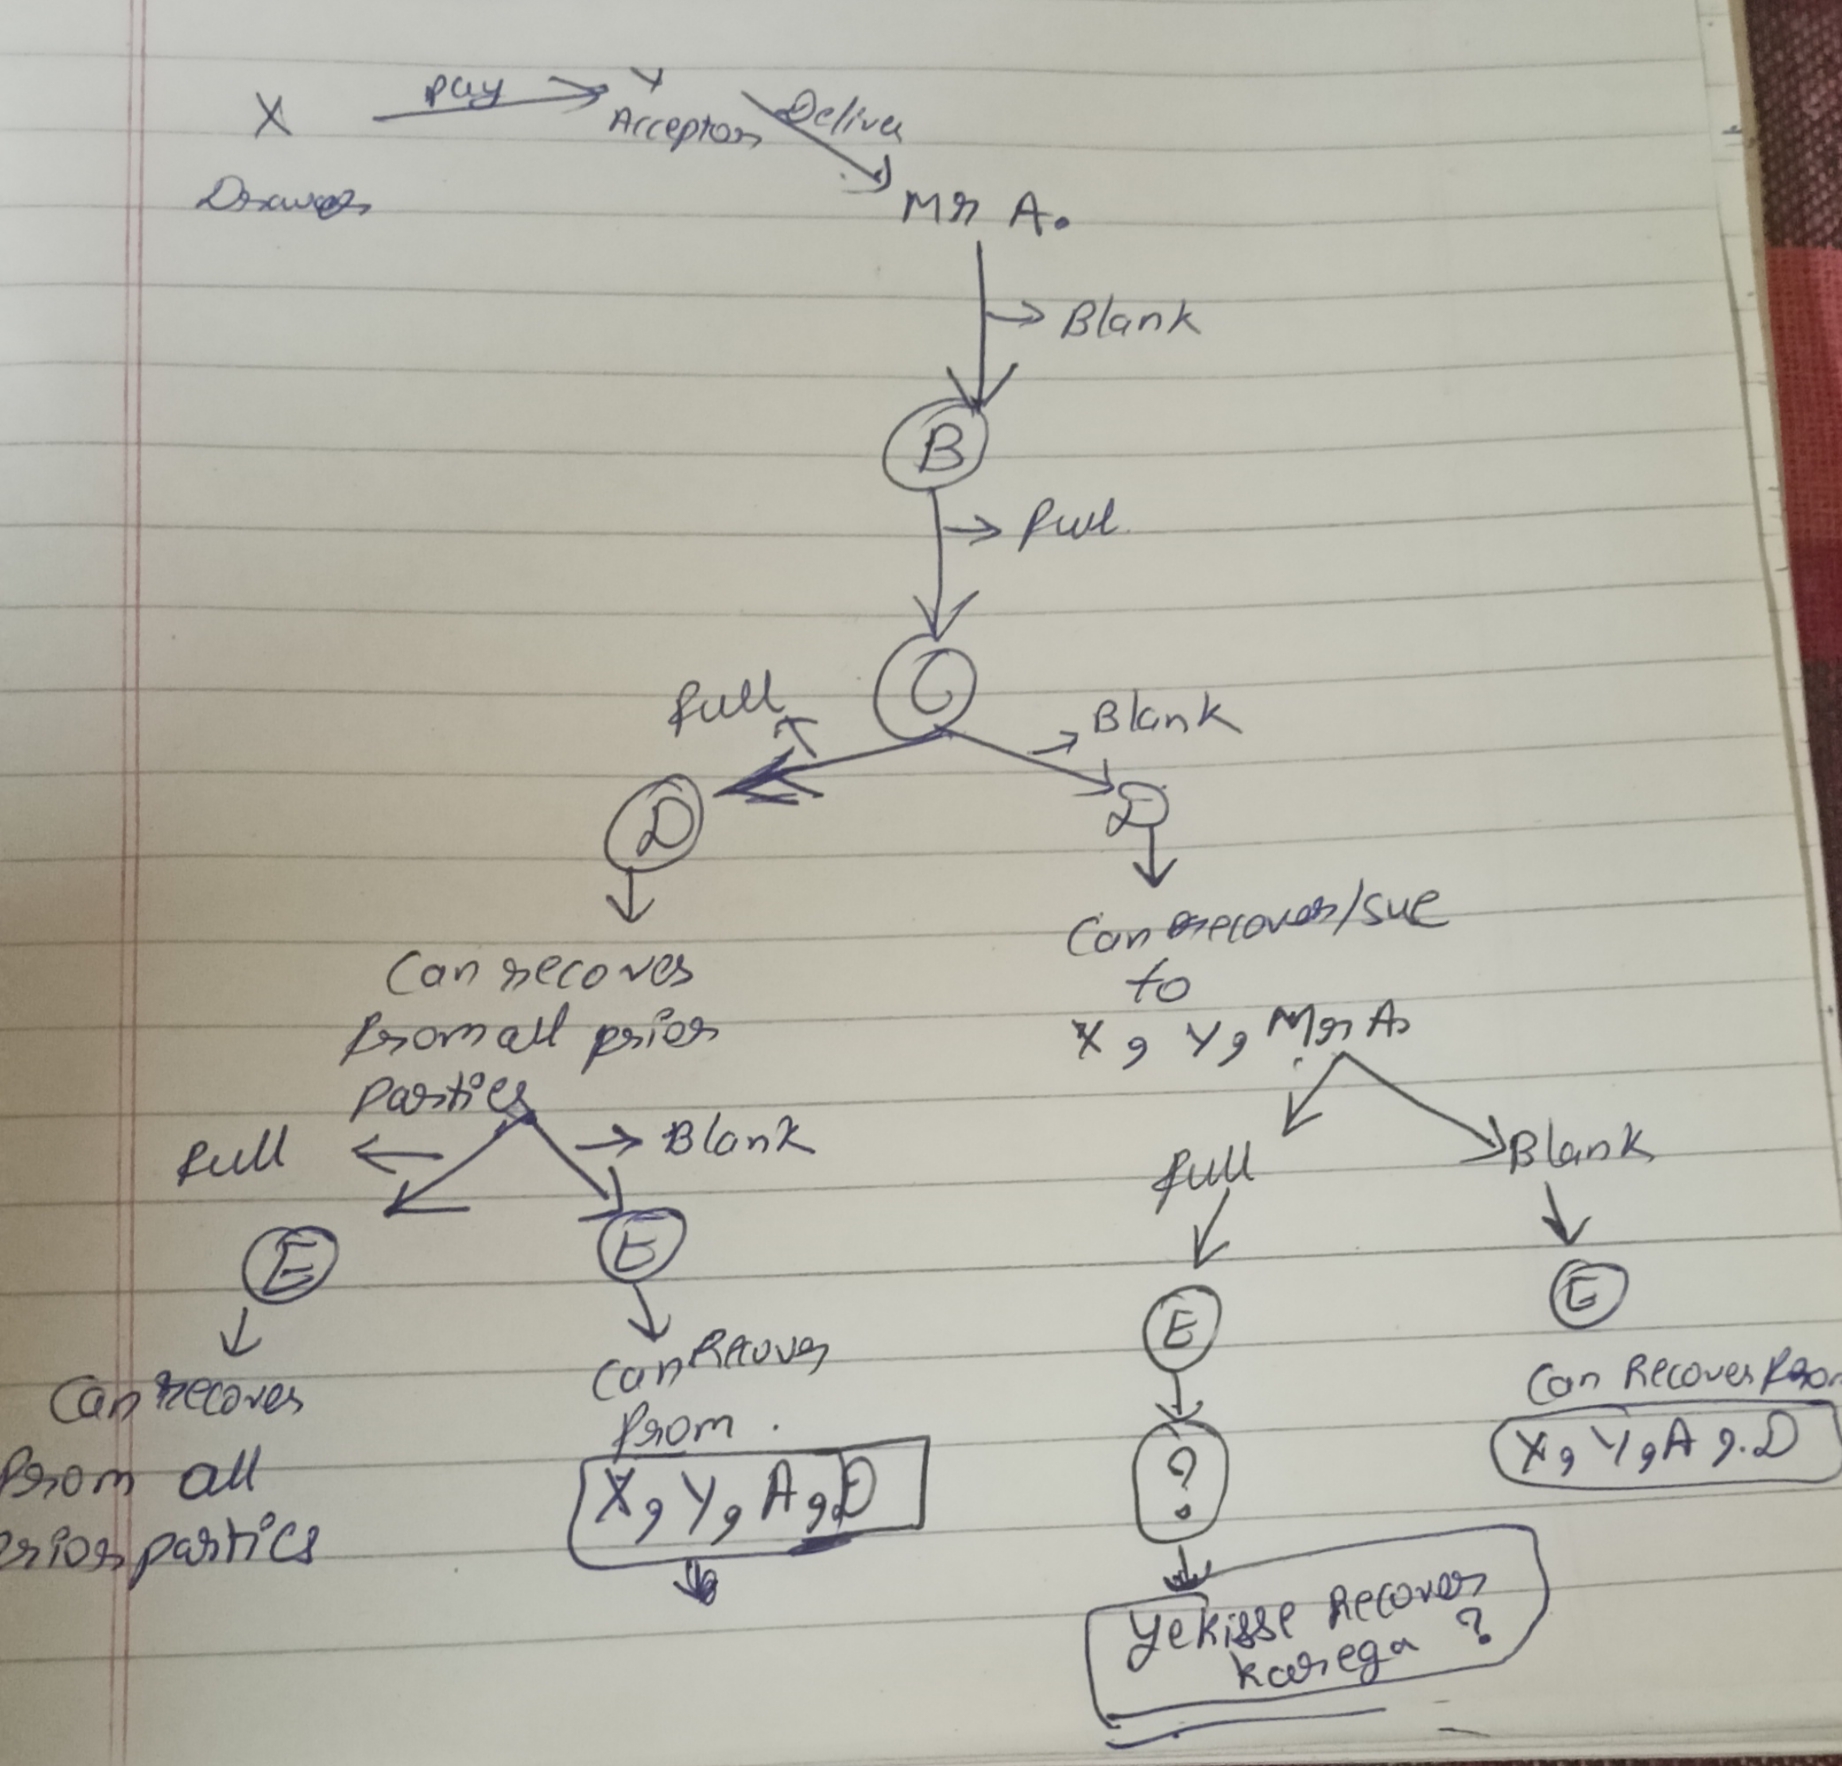 X pay Y Deliver
Acceptor
Drawer Mr A.
Blank
B
full
C
full Blank
D D
Can recover Can recover/sue
from all prior to
parties X, Y, Mr A
full Blank full Blank
E E E E
Can recover Can Recover Can Recover from
from all from. ? X, Y, A, D
prior parties X, Y, A, D
Ye kisse Recover
karega ?